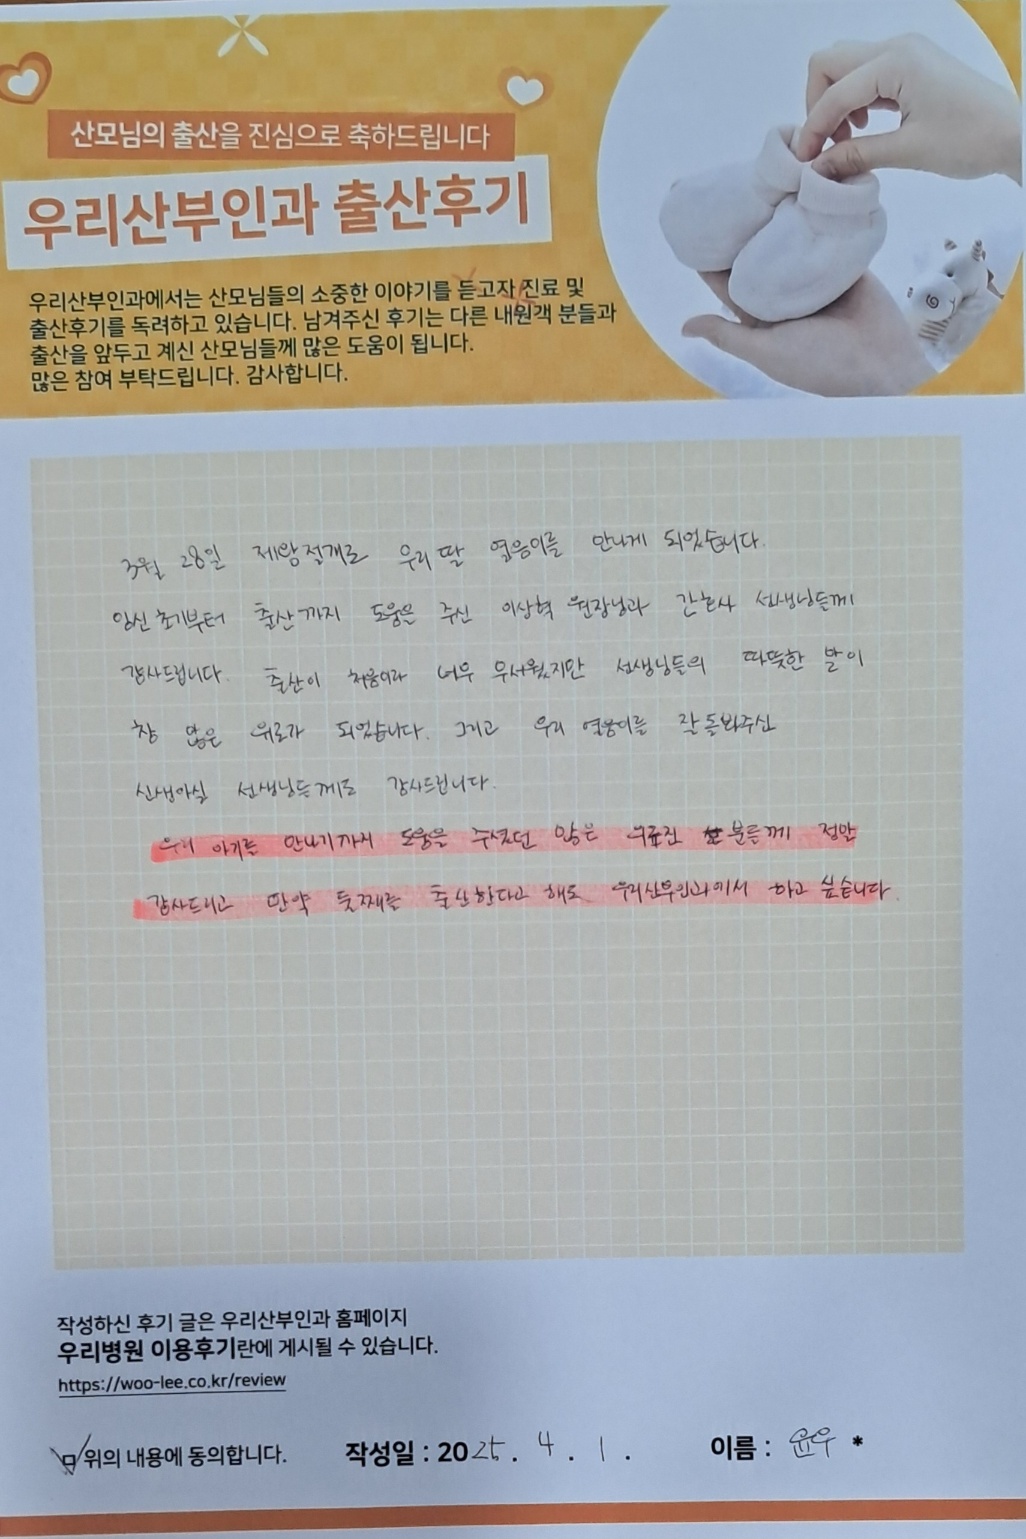 산모님의 출산을 진심으로 축하드립니다
우리산부인과 출산후기
우리산부인과에서는 산모님들의 소중한 이야기를 듣고자 진료 및
출산후기를 독려하고 있습니다. 남겨주신 후기는 다른 내원객 분들과
출산을 앞두고 계신 산모님들께 많은 도움이 됩니다.
많은 참여 부탁드립니다. 감사합니다.
3월 28일 제왕절개로 우리 딸 열음이를 만나게 되었습니다.
임신 초기부터 출산까지 도움은 주신 이상혁 원장님과 간호사 선생님들께
감사드립니다. 출산이 처음이라 너무 무서웠지만 선생님들의 따뜻한 말이
참 많은 위로가 되었습니다. 그리고 우리 열음이를 잘 돌봐주신
신생아실 선생님들께도 감사드립니다.
우리 아기를 만나기까지 도움을 주셨던 많은 의료진 분들께 정말
감사드리고 만약 둘째를 출산한다고 해도 우리산부인과에서 하고 싶습니다.
작성하신 후기 글은 우리산부인과 홈페이지
우리병원 이용후기란에 게시될 수 있습니다.
https://woo-lee.co.kr/review
위의 내용에 동의합니다. 작성일 : 2025. 4. 1. 이름 : 윤우 *